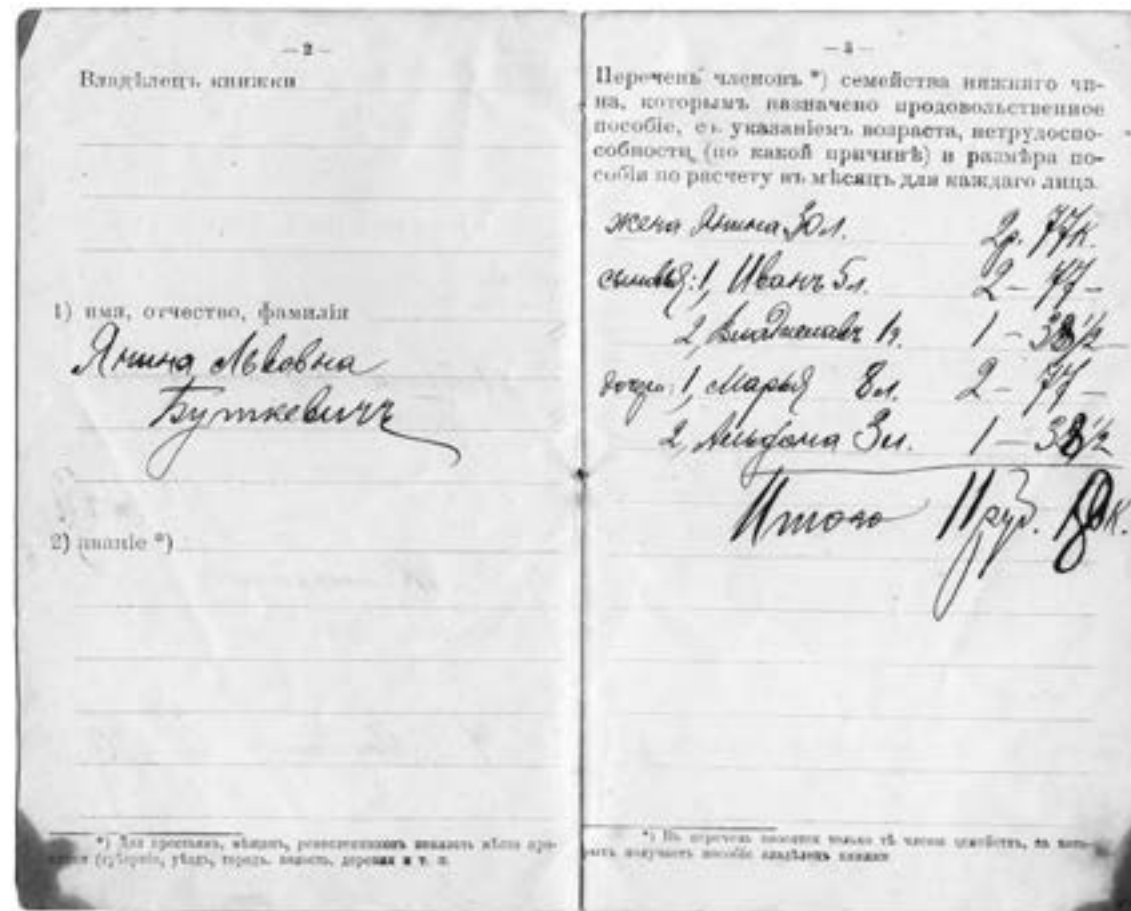 — 2 —
Владѣлецъ книжки
1) имя, отчество, фамилія
Янина Львовна
Буткевичъ
2) званіе *)
*) Для крестьянъ, мѣщанъ, ремесленниковъ показать мѣсто при-
(губернія, уѣздъ, городъ, волость, деревня и т. п.
— 3 —
Перечень членовъ *) семейства нижняго чи-
на, которымъ назначено продовольственное
пособіе, съ указаніемъ возраста, нетрудоспо-
собности (по какой причинѣ) и размѣра по-
собія по расчету въ мѣсяцъ для каждаго лица
жена Янина 30 л. 2 р. 77 к.
сыновья: 1, Иванъ 5 л. 2 — 77 —
2, 1 г. 1 — 38 1/2
дочери: 1, Марья 8 л. 2 — 77 —
2, 3 л. 1 — 38 1/2
Итого 11 руб. к.
*) Въ перечень вносятся только тѣ члены семейства, на кото-
рыхъ получаетъ пособіе владѣлецъ книжки